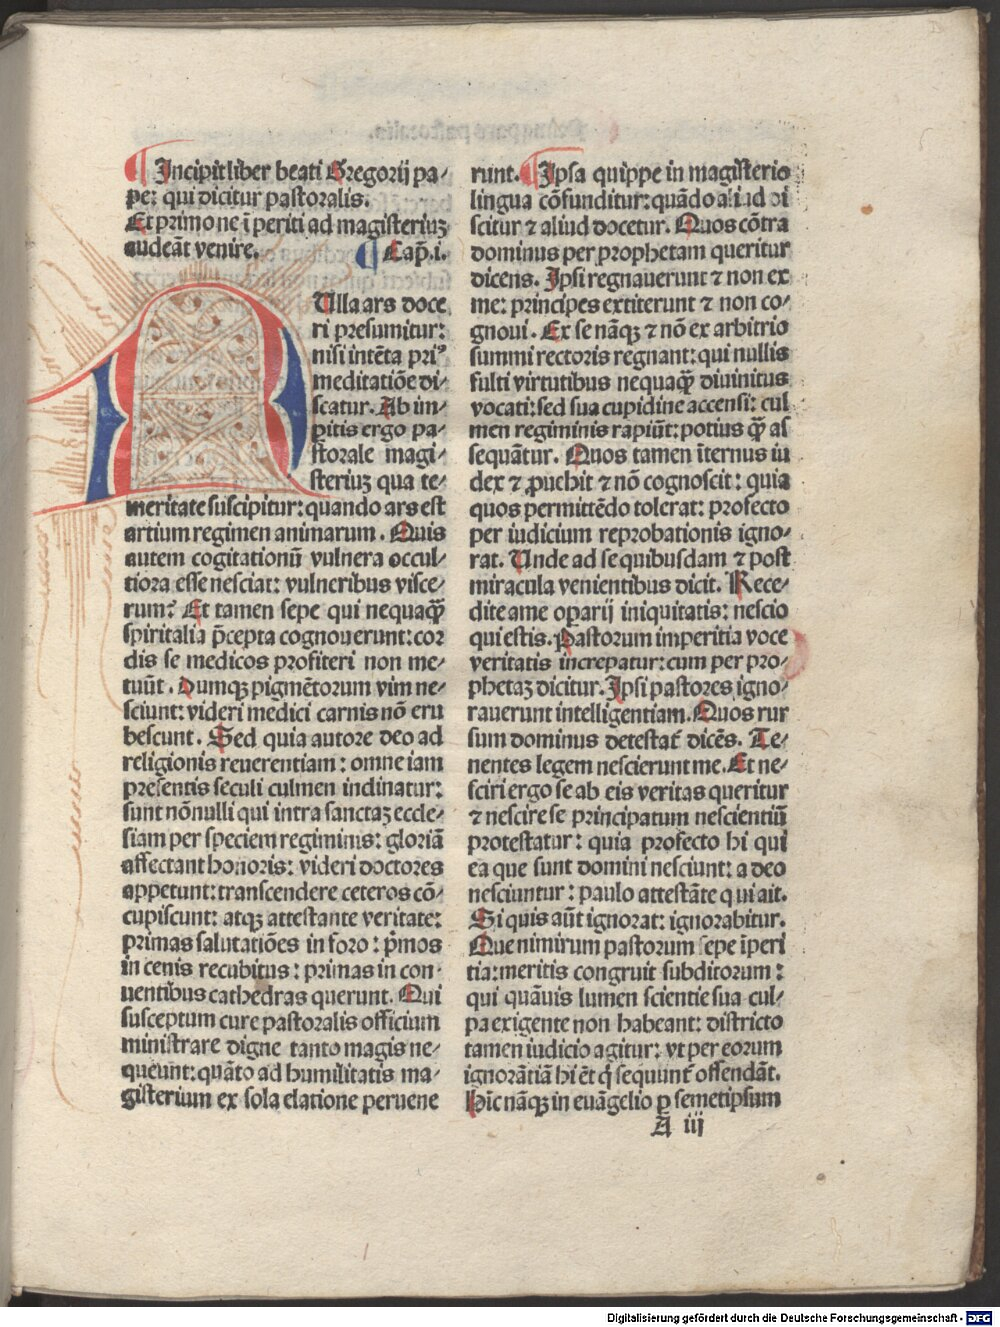 Incipit liber beati Gregorij pa⸗
pe: qui dicitur pastoralis.
Et primo ne īperiti ad magisteriuꝫ
audeāt venire. Cap̄.i.
NUlla ars doce
ri presumitur:
nisi intēta priꝰ
meditatiōe di⸗
scatur. Ab im⸗
ꝑitis ergo pa⸗
storale magi⸗
steriuꝫ qua te⸗
meritate suscipitur: quando ars est
artium regimen animarum. Quis
autem cogitationū vulnera occul⸗
tiora esse nesciat: vulneribus visce⸗
rum? Et tamen sepe qui nequaqͣꝫ
spiritalia p̄cepta cognouerunt: cor
dis se medicos profiteri non me⸗
tuūt. Dumqꝫ pigmētorum vim ne⸗
sciunt: videri medici carnis nō eru
bescunt. Sed quia autore deo ad
religionis reuerentiam: omne iam
presentis seculi culmen indinatur:
sunt nōnulli qui intra sanctaꝫ eccle⸗
siam per speciem regiminis: gloriā
affectant honoris: videri doctores
appetunt: transcendere ceteros cō⸗
cupiscunt: atqꝫ attestante veritate:
primas salutatiōes in foro: p̄mos
in cenis recubitus: primas in con⸗
uentibus cathedras querunt. Qui
susceptum cure pastoralis officium
ministrare digne tanto magis ne⸗
queunt: quāto ad humilitatis ma⸗
gisterium ex sola elatione peruene
runt. Ipsa quippe in magisterio
lingua cōfunditur: quādo aliud di
scitur ⁊ aliud docetur. Quos cōtra
dominus per prophetam queritur
dicens. Ipsi regnauerunt ⁊ non ex
me: principes extiterunt ⁊ non co⸗
gnoui. Ex se nāqꝫ ⁊ nō ex arbitrio
summi rectoris regnant: qui nullis
fulti virtutibus nequaqͣꝫ diuinitus
vocati: sed sua cupidine accensi: cul
men regiminis rapiūt: potius qͣꝫ as
sequātur. Quos tamen īternus iu
dex ⁊ ꝓuehit ⁊ nō cognoscit: quia
quos permittēdo tolerat: profecto
per iudicium reprobationis igno⸗
rat. Unde ad se quibusdam ⁊ post
miracula venientibus dicit. Rece⸗
dite a me oꝑarij iniquitatis: nescio
qui estis. Pastorum imperitia voce
veritatis increpatur: cum per pro⸗
phetaꝫ dicitur. Ipsi pastores igno⸗
rauerunt intelligentiam. Quos rur
sum dominus detestat᷑ dicēs. Te⸗
nentes legem nescierunt me. Et ne⸗
sciri ergo se ab eis veritas queritur
⁊ nescire se principatum nescientiū
protestatur: quia profecto hi qui
ea que sunt domini nesciunt: a deo
nesciuntur: paulo attestāte qui ait.
Si quis aūt ignorat: ignorabitur.
Que nimirum pastorum sepe īperi
tia: meritis congruit subditorum:
qui quāuis lumen scientie sua cul⸗
pa exigente non habeant: districto
tamen iudicio agitur: vt per eorum
ignorātiā hi ēt q̄ sequunt᷑ offendāt.
Hic nāqꝫ in euāgelio ꝑ semetipsum
A iij
Digitalisierung gefördert durch die Deutsche Forschungsgemeinschaft - DFG